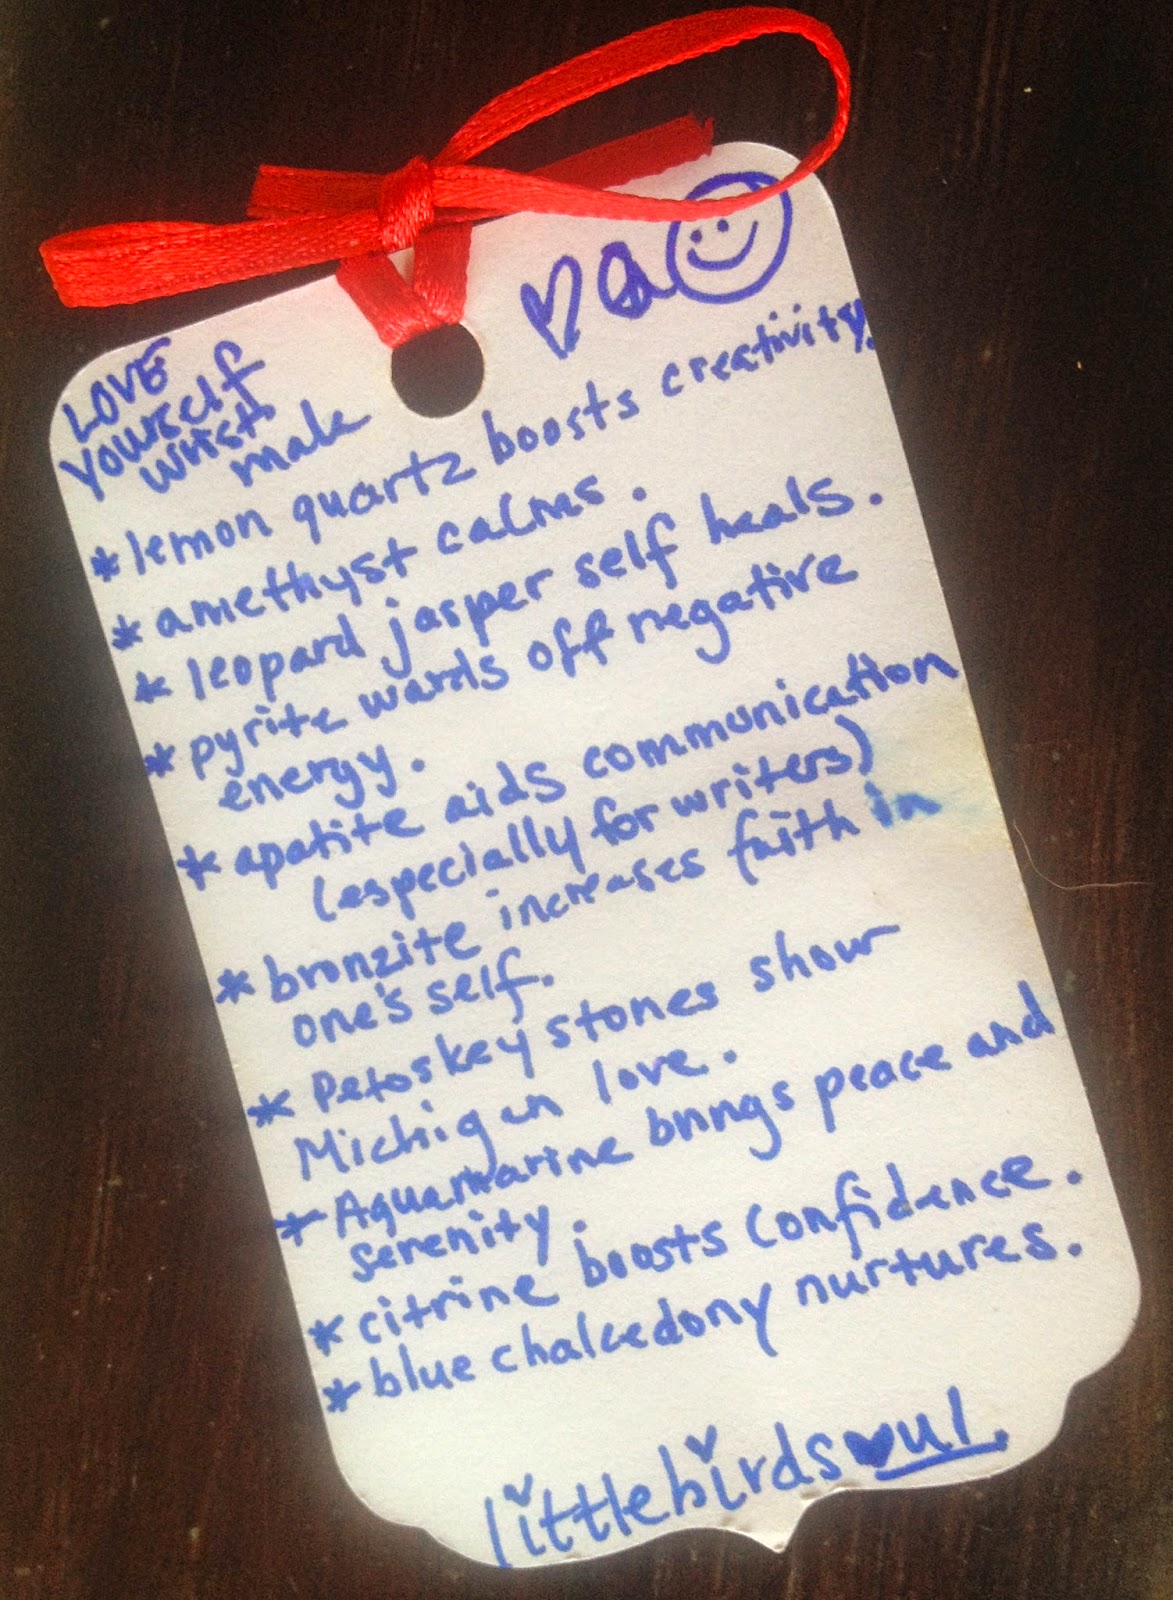 LOVE
yourself
wrist
mala
*lemon quartz boosts creativity.
*amethyst calms.
*leopard jasper self heals.
*pyrite wards off negative
energy.
*apatite aids communication
(especially for writers)
*bronzite increases faith in
one's self.
*Petoskey stones show
Michigan love.
*Aquamarine brings peace and
serenity.
*citrine boosts confidence.
*blue chalcedony nurtures.
littlebirds♥ul.